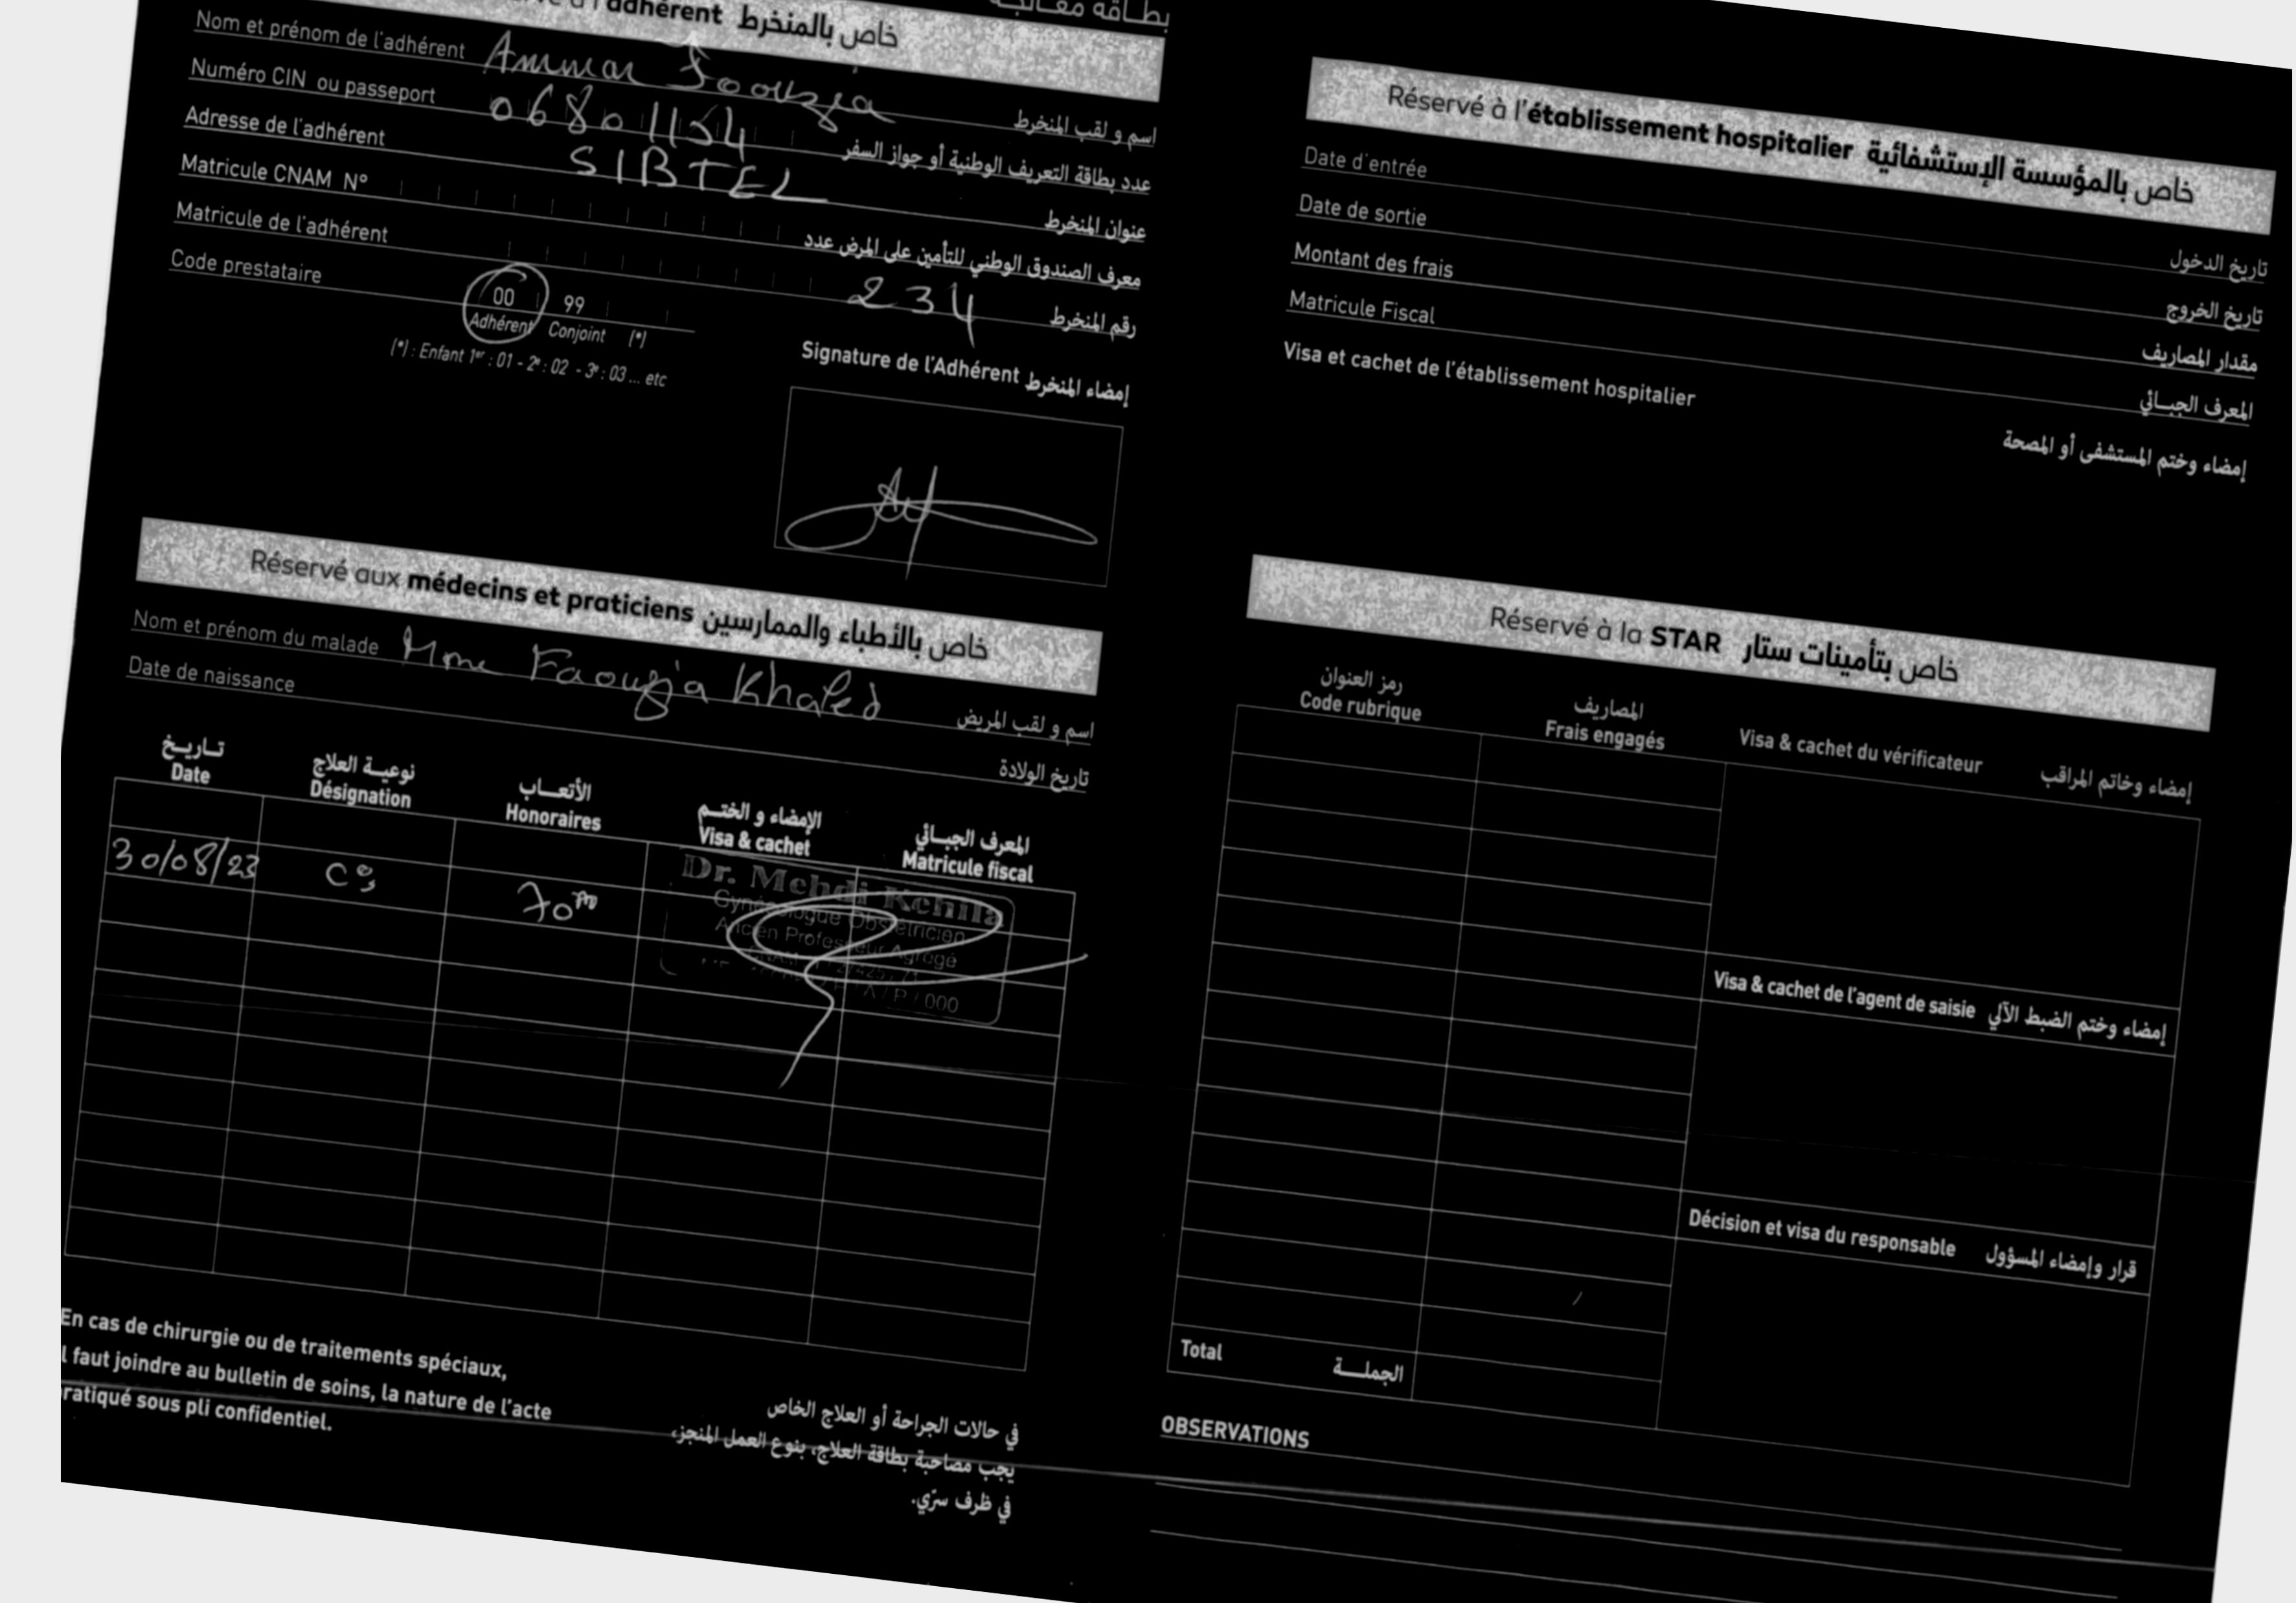 بطاقة معالجة
à l'adhérent خاص بالمنخرط
Nom et prénom de l'adhérent Ammar Faouzia اسم و لقب المنخرط
Numéro CIN ou passeport 06801154 عدد بطاقة التعريف الوطنية أو جواز السفر
Adresse de l'adhérent SIBTEL عنوان المنخرط
Matricule CNAM N° معرف الصندوق الوطني للتأمين على المرض عدد
Matricule de l'adhérent 234 رقم المنخرط
Code prestataire 00 99
Adhérent Conjoint (*)
(*) : Enfant 1er : 01 - 2e : 02 - 3e : 03 ... etc
Signature de l'Adhérent إمضاء المنخرط
Réservé aux médecins et praticiens خاص بالأطباء والممارسين
Nom et prénom du malade Mme Faouzia Khaled اسم و لقب المريض
Date de naissance تاريخ الولادة
تـاريـخ نوعيـة العلاج الأتعـاب الإمضاء و الختـم المعرف الجبـائي
Date Désignation Honoraires Visa & cachet Matricule fiscal
30/08/23 CS 70
Dr. Mehdi Kehila
Gynécologue Obstétricien
Ancien Professeur Agrégé
En cas de chirurgie ou de traitements spéciaux,
l faut joindre au bulletin de soins, la nature de l'acte
ratiqué sous pli confidentiel.
في حالات الجراحة أو العلاج الخاص
يجب مصاحبة بطاقة العلاج، بنوع العمل المنجز،
في ظرف سرّي.
Réservé à l'établissement hospitalier خاص بالمؤسسة الإستشفائية
Date d'entrée تاريخ الدخول
Date de sortie تاريخ الخروج
Montant des frais مقدار المصاريف
Matricule Fiscal المعرف الجبـائي
Visa et cachet de l'établissement hospitalier إمضاء وختم المستشفى أو المصحة
Réservé à la STAR خاص بتأمينات ستار
رمز العنوان المصاريف
Code rubrique Frais engagés Visa & cachet du vérificateur إمضاء وخاتم المراقب
Visa & cachet de l'agent de saisie إمضاء وختم الضبط الآلي
Décision et visa du responsable قرار وإمضاء المسؤول
Total الجملـــة
OBSERVATIONS